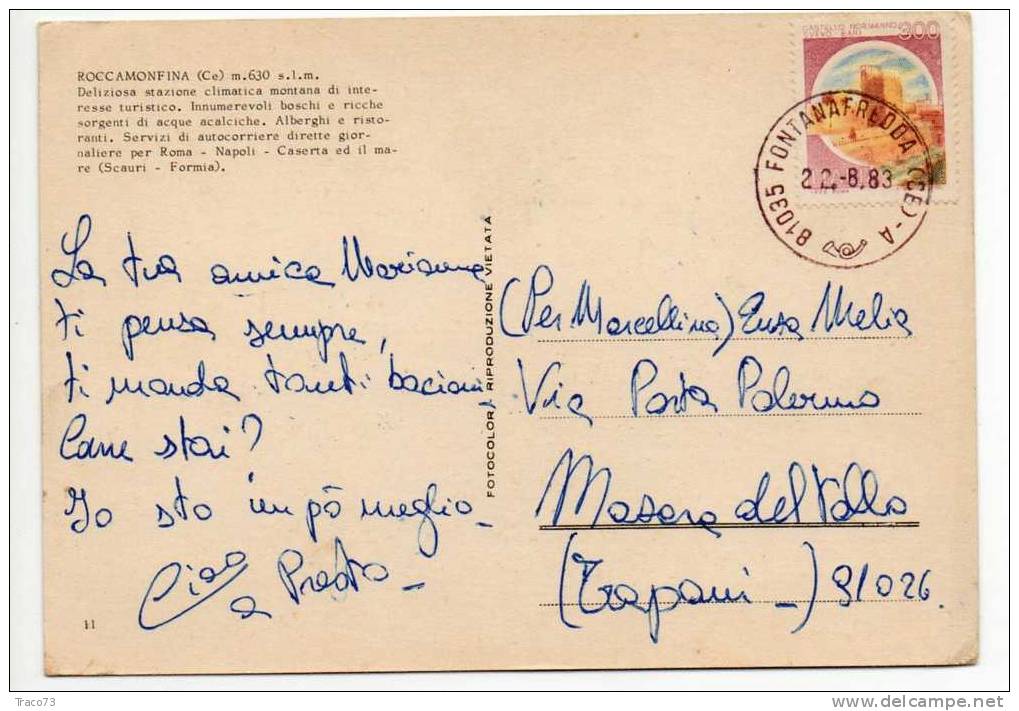 ROCCAMONFINA (Ce) m.630 s.l.m.
Deliziosa stazione climatica montana di inte-
resse turistico. Innumerevoli boschi e ricche
sorgenti di acque acalciche. Alberghi e risto-
ranti. Servizi di autocorriere dirette gior-
naliere per Roma - Napoli - Caserta ed il ma-
re (Scauri - Formia).
La tua amica Marianna
ti pensa sempre,
ti manda tanti bacioni
Come stai?
Io sto un pò meglio -
Ciao
a Presto -
11
FOTOCOLOR - RIPRODUZIONE VIETATA
CASTELLO NORMANNO
SVEVO BARI
300
81035 FONTANAFREDDA (CE) - A
22.-8.83
(Per Marcellina) Enza Melia
Via Porta Palermo
Mazara del Vallo
(Trapani -) 91026
Traco73
www.delcampe.net